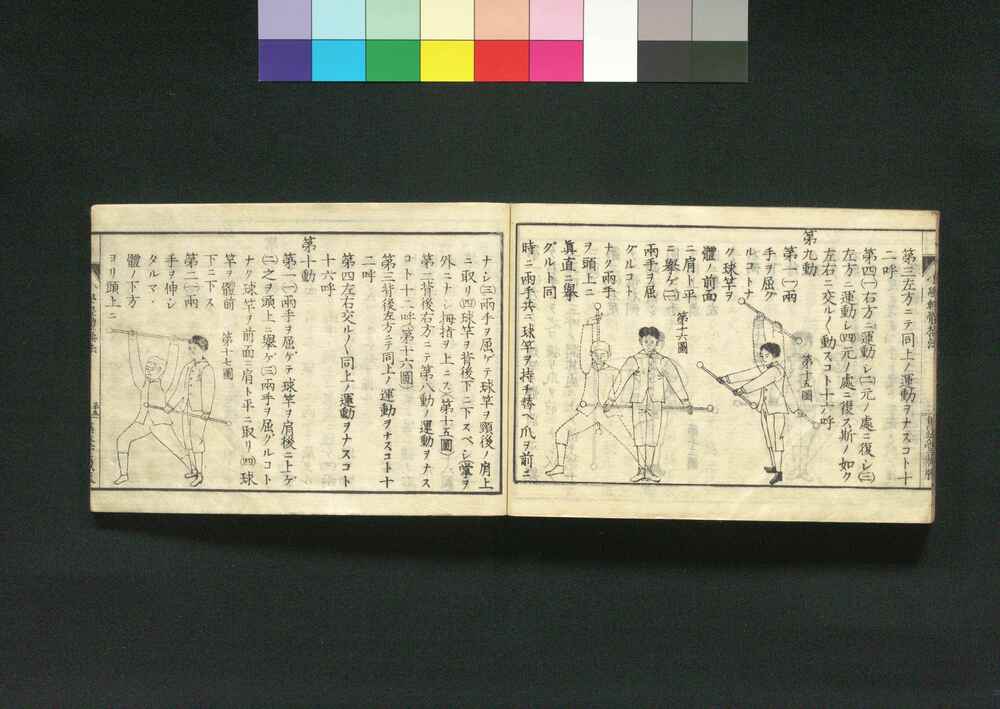 第三左方ニテ同上ノ運動ヲナスコト十
二呼
第四(一)右方ニ運動シ(二)元ノ處ニ復シ(三)
左方ニ運動シ(四)元ノ處ニ復ス斯ノ如ク
左右ニ交ル〱動スコト十六呼
第九動
第一(一)兩
手ヲ屈グ
ルコトナ
ク球竿ヲ
體ノ前面
ニ肩ト平
ニ擧ゲ(二)
兩手ヲ屈
ゲルコト
ナク兩手
ヲ頭上ニ
眞直ニ擧
グルト同
時ニ兩手共ニ球竿ヲ持チ替ヘ爪ヲ前ニ
第十五圖
第十六圖
ナシ(三)兩手ヲ屈ゲテ球竿ヲ頸後ノ肩上
ニ取リ(四)球竿ヲ背後下ニ下スベシ(掌ヲ
外ニナシ拇指ヲ上ニス)(第十五圖)
第二背後右方ニテ第八動ノ運動ヲナス
コト十二呼(第十六圖)
第三背後左方ニテ同上ノ運動ヲナスコト十
二呼
第四左右交ル〱同上ノ運動ヲナスコト
十六呼
第十動
第一(一)兩手ヲ屈ゲテ球竿ヲ肩後ニ上ゲ
(二)之ヲ頭上ニ擧ゲ(三)兩手ヲ屈グルコト
ナク球竿ヲ前面ニ肩ト平ニ取リ(四)球
竿ヲ體前
下ニ下ス
第二(一)兩
手ヲ伸シ
タルマヽ
體ノ下方
ヨリ頭上ニ
第十七圖